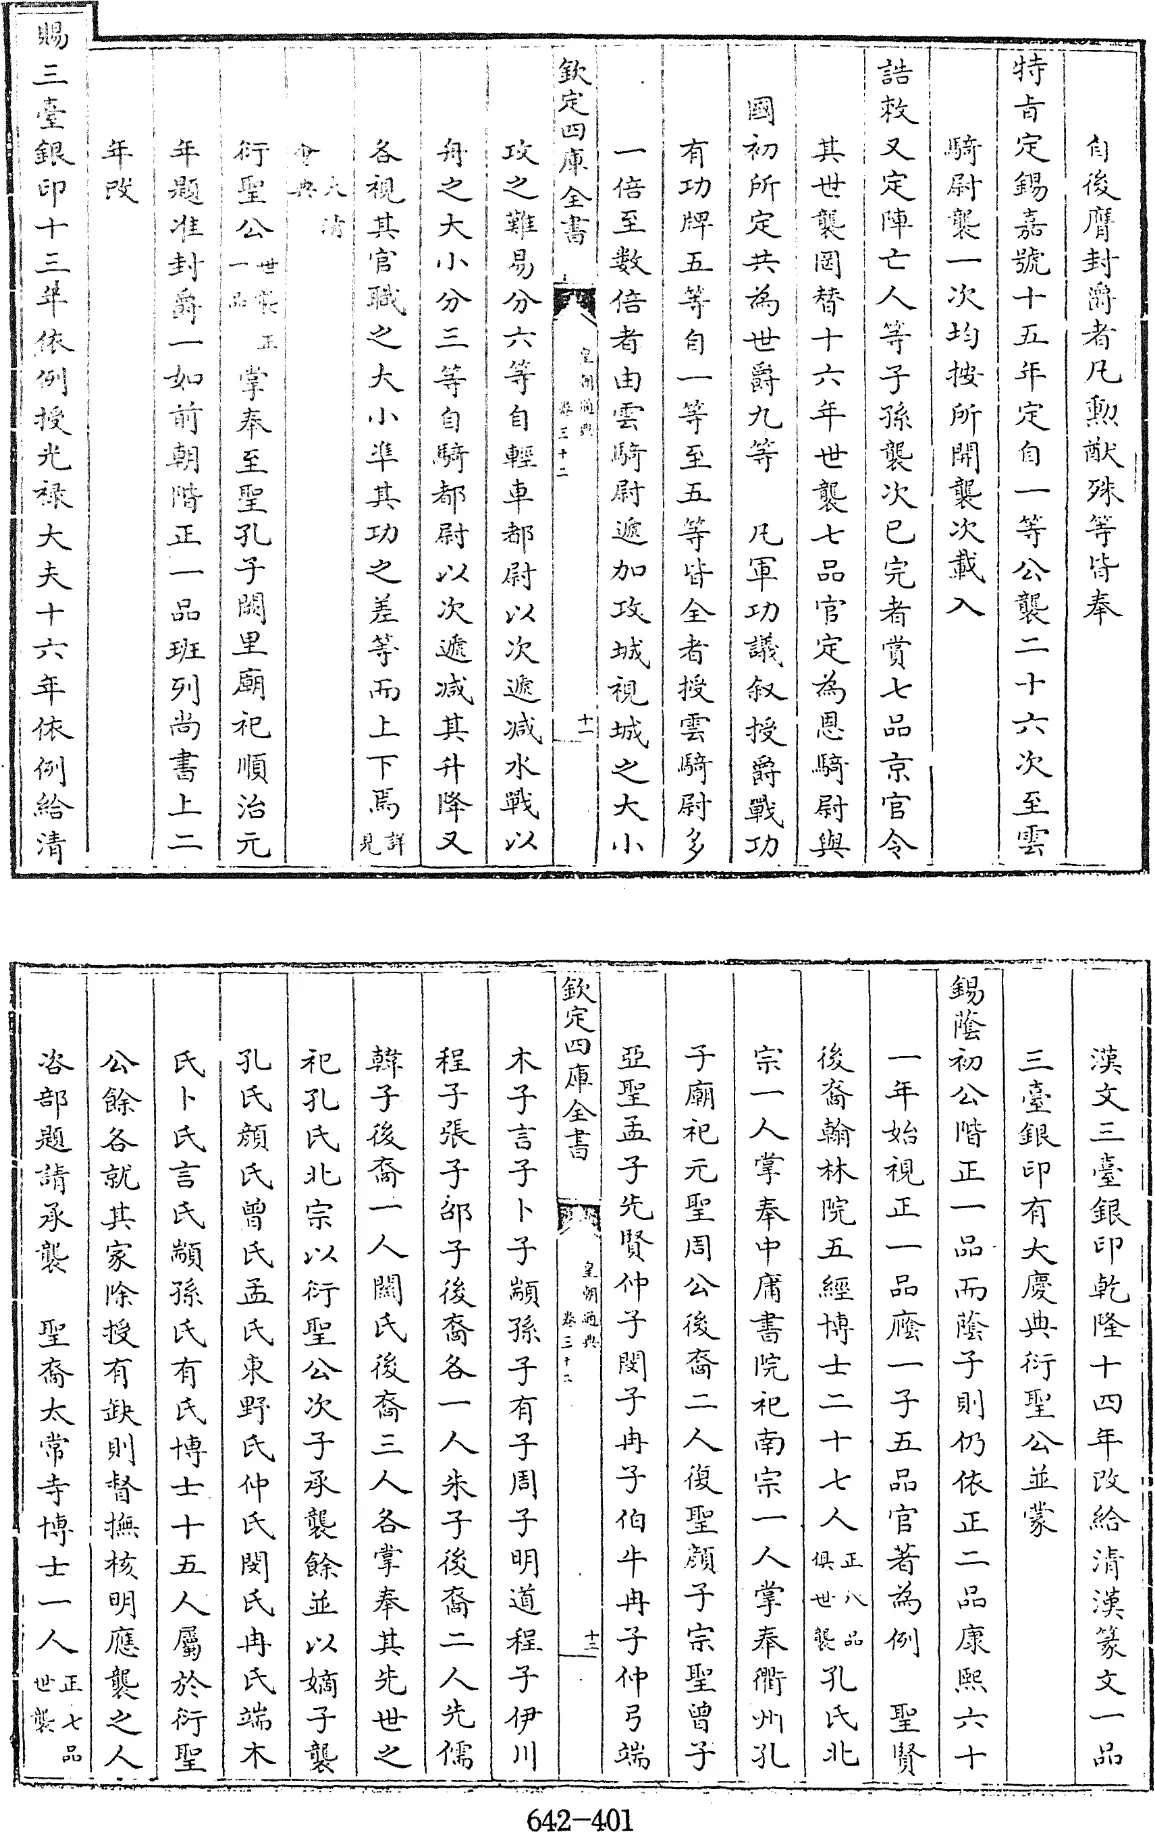 自後膺封爵者凡勲猷殊等皆奉
特旨定錫嘉號十五年定自一等公襲二十六次至雲
騎尉襲一次均按所開襲次載入
誥敕又定陣亡人等子孫襲次已完者賞七品京官令
其世襲罔替十六年世襲七品官定為恩騎尉與
國初所定共為世爵九等　凡軍功議叙授爵戰功
有功牌五等自一等至五等皆全者授雲騎尉多
一倍至數倍者由雲騎尉遞加攻城視城之大小
欽定四庫全書　皇朝通典　卷三十二　十一
攻之難易分六等自輕車都尉以次遞減水戰以
舟之大小分三等自騎都尉以次遞減其升降又
各視其官職之大小準其功之差等而上下焉詳見
大清會典
衍聖公世襲正一品掌奉至聖孔子闕里廟祀順治元
年題准封爵一如前朝階正一品班列尚書上二
年改
賜三臺銀印十三年依例授光禄大夫十六年依例給清
漢文三臺銀印乾隆十四年改給清漢篆文一品
三臺銀印有大慶典衍聖公並蒙
錫蔭初公階正一品而蔭子則仍依正二品康熙六十
一年始視正一品廕一子五品官著為例　聖賢
後裔翰林院五經博士二十七人正八品俱世襲孔氏北
宗一人掌奉中庸書院祀南宗一人掌奉衢州孔
子廟祀元聖周公後裔二人復聖顔子宗聖曾子
亞聖孟子先賢仲子閔子冉子伯牛冉子仲弓端
欽定四庫全書　皇朝通典　卷三十二　十二
木子言子卜子顓孫子有子周子明道程子伊川
程子張子邵子後裔各一人朱子後裔二人先儒
韓子後裔一人關氏後裔三人各掌奉其先世之
祀孔氏北宗以衍聖公次子承襲餘並以嫡子襲
孔氏顔氏曾氏孟氏東野氏仲氏閔氏冉氏端木
氏卜氏言氏顓孫氏有氏博士十五人屬於衍聖
公餘各就其家除授有缺則督撫核明應襲之人
咨部題請承襲　聖裔太常寺博士一人正七品世襲
642-401